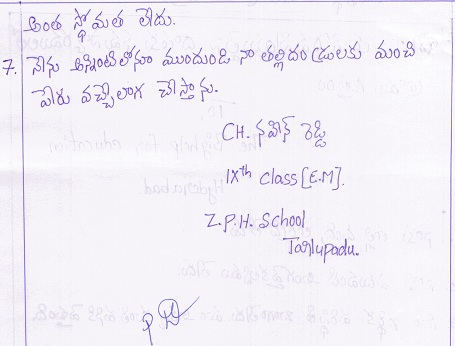 అంత స్థోమత లేదు.
7. నేను అన్నింటిలోనూ ముందుండి నా తల్లిదండ్రులకు మంచి
పేరు వచ్చేలాగ చేస్తాను.
CH. నవీన్ రెడ్డి
IXth class [E.M].
Z.P.H. School
Tarlupadu.